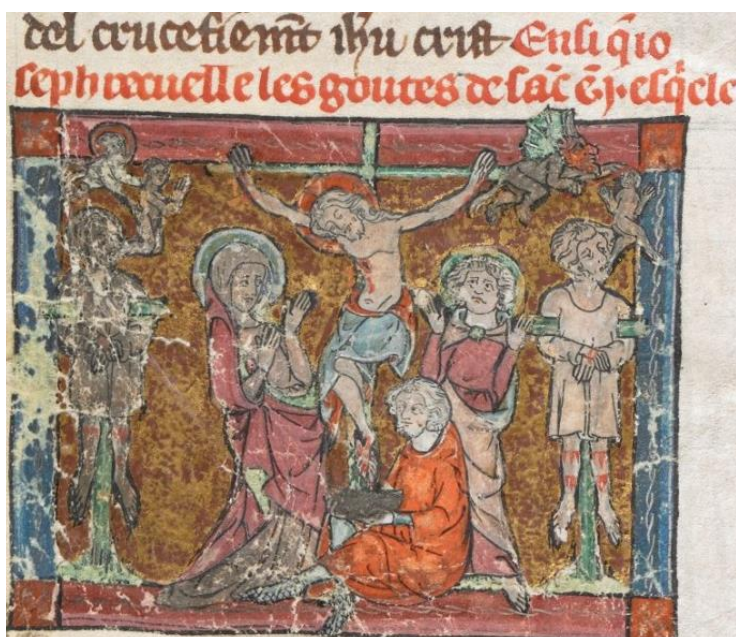 del crucefiemt ihu crist Ensi q̃ io
seph recuelle les goutes de sac